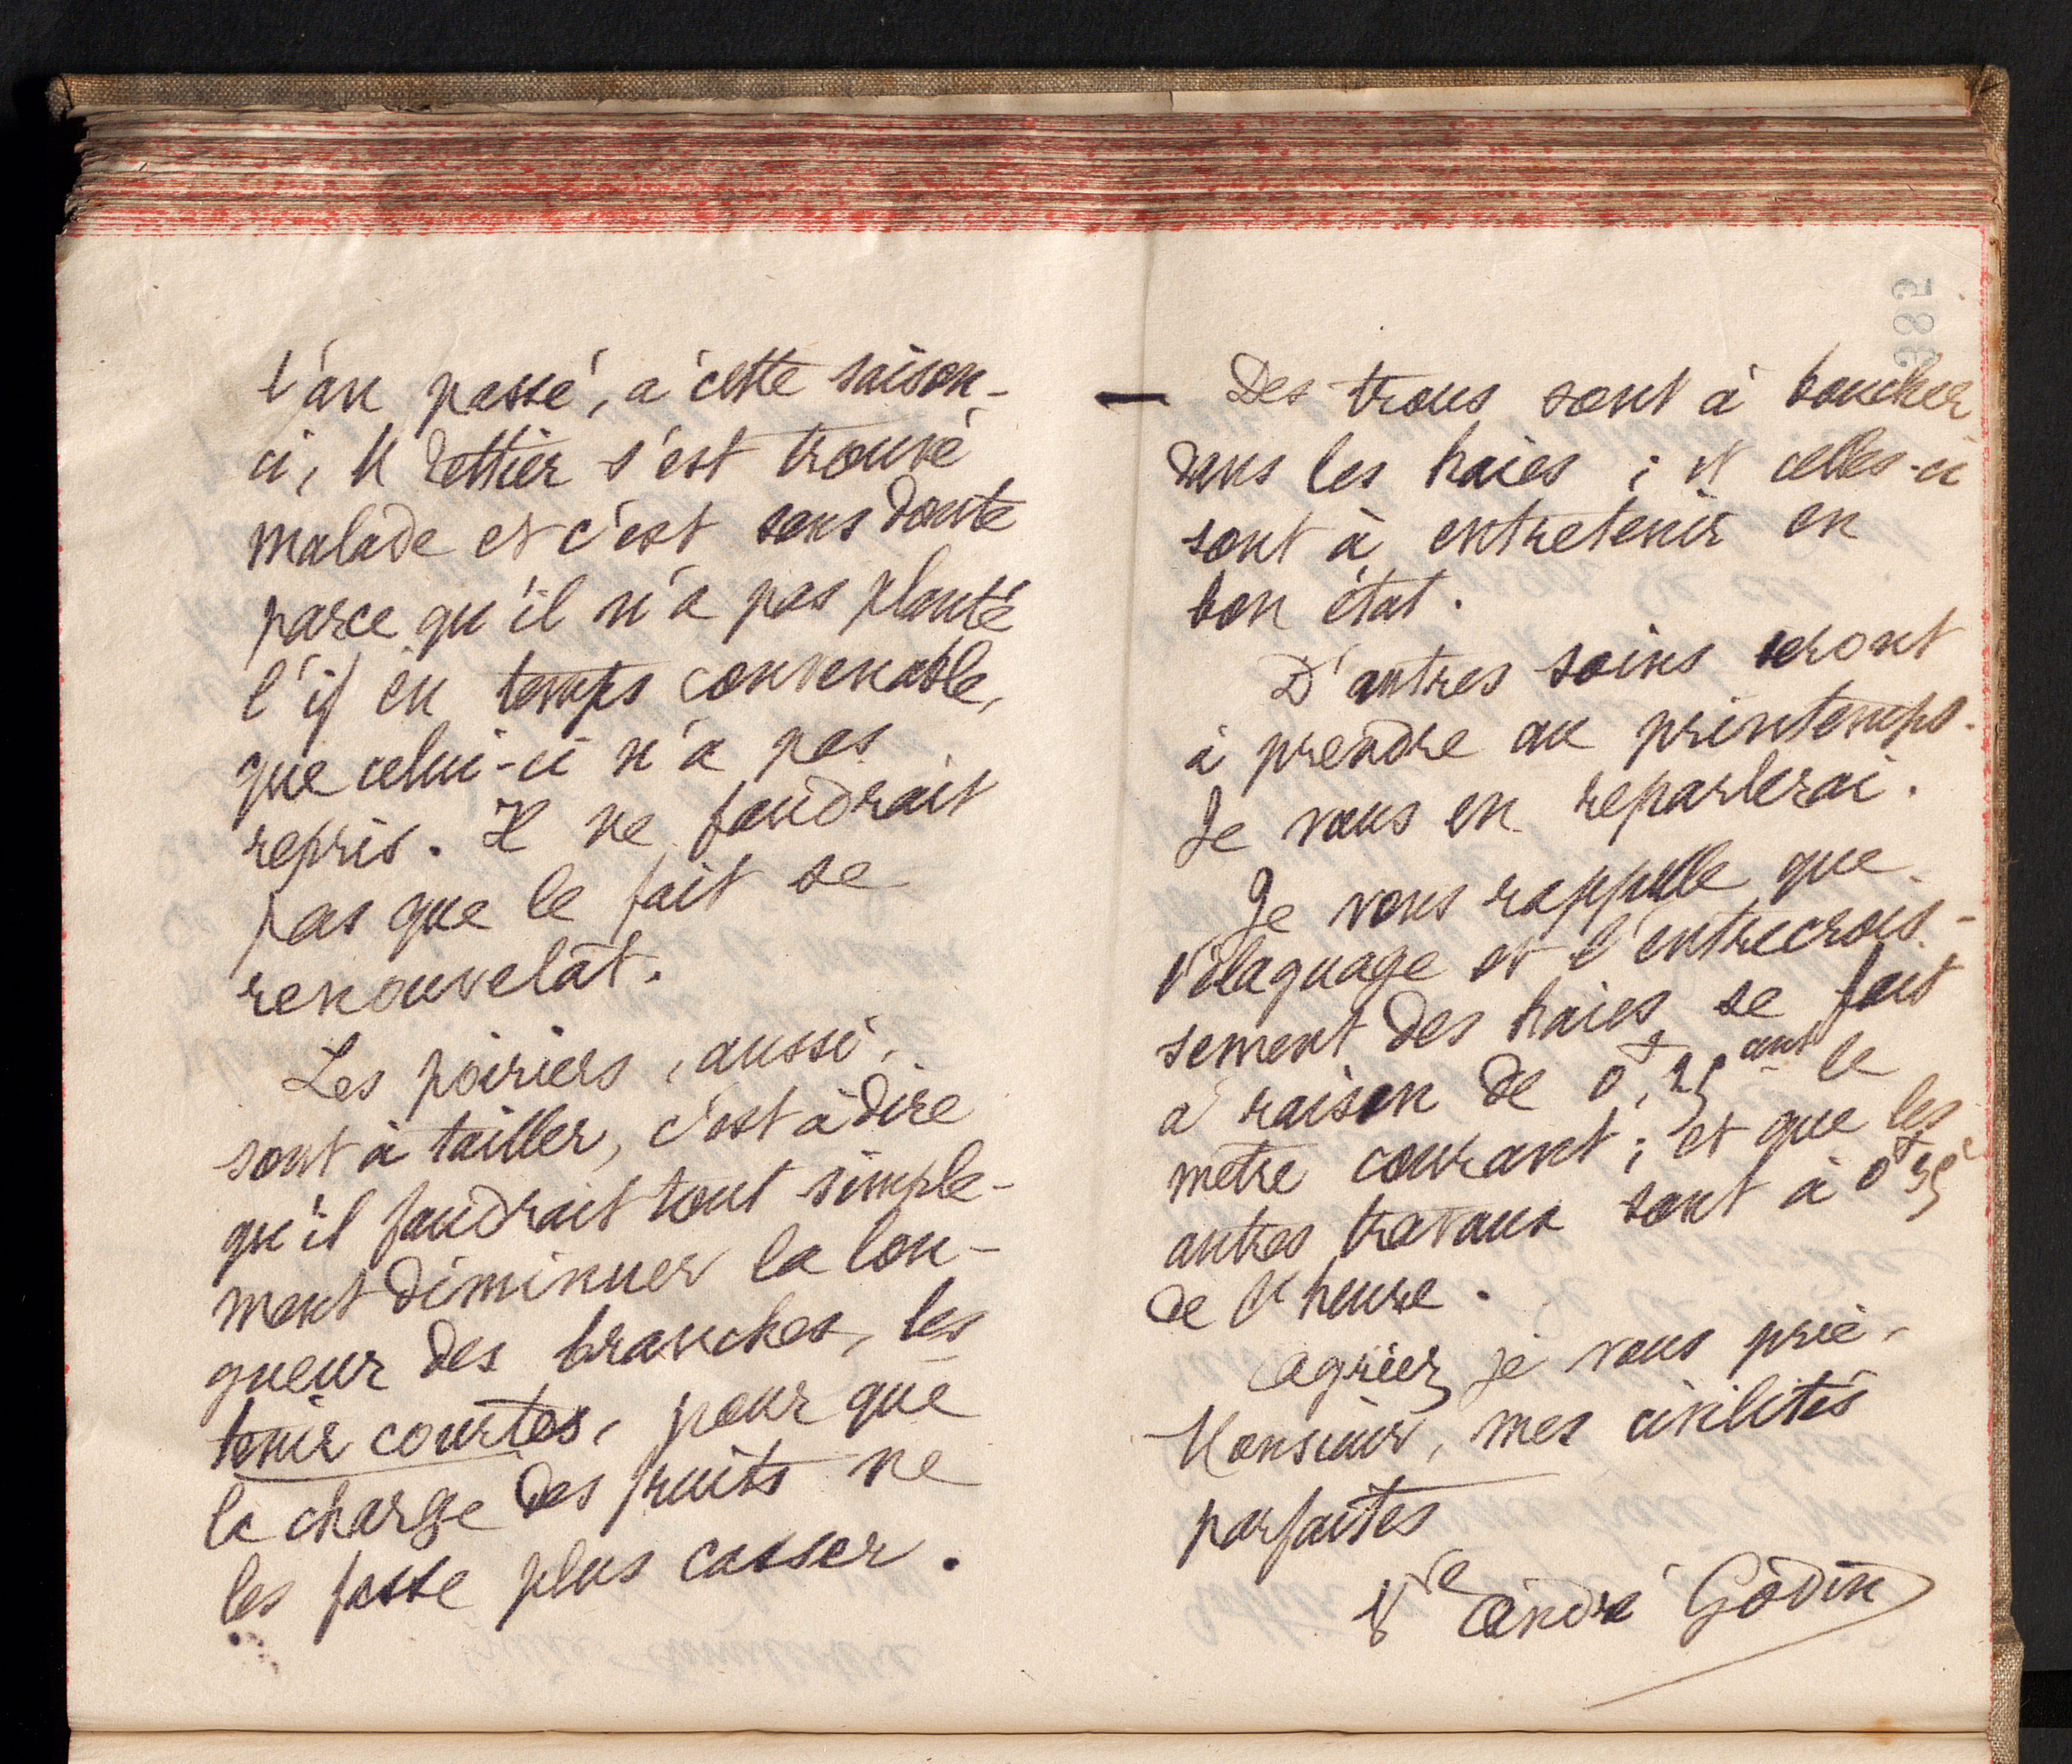 L'an passé, à cette saison-
ci, M Rettier s'est trouvé
malade et c'est sans doute
parce qu'il n'a pas planté
l'if en temps convenable,
que celui-ci n'a pas
repris. Il ne faudrait
pas que le fait se
renouvelât.
Les poiriers, aussi,
sont à tailler, c'est à dire
qu'il faudrait tout simple-
ment diminuer la lon-
gueur des branches, les
tenir courtes, pour que
la charge des fruits ne
les fasse plus casser.
385
— Des trous sont à boucher
dans les haies ; et celles-ci
sont à entretenir en
bon état.
D'autres soins seront
à prendre au printemps.
Je vous en reparlerai.
Je vous rappelle que
l'élaguage et l'entrecrois-
sement des haies se fait
à raison de 0f,25 le
mètre courant ; et que les
autres travaux sont à 0f35
de l'heure.
Agréez, je vous prie,
Monsieur, mes civilités
parfaites
Vve André Godin